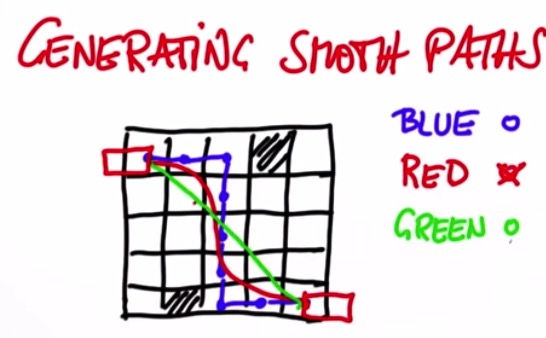 GENERATING SMOTH PATHS
BLUE
RED
GREEN